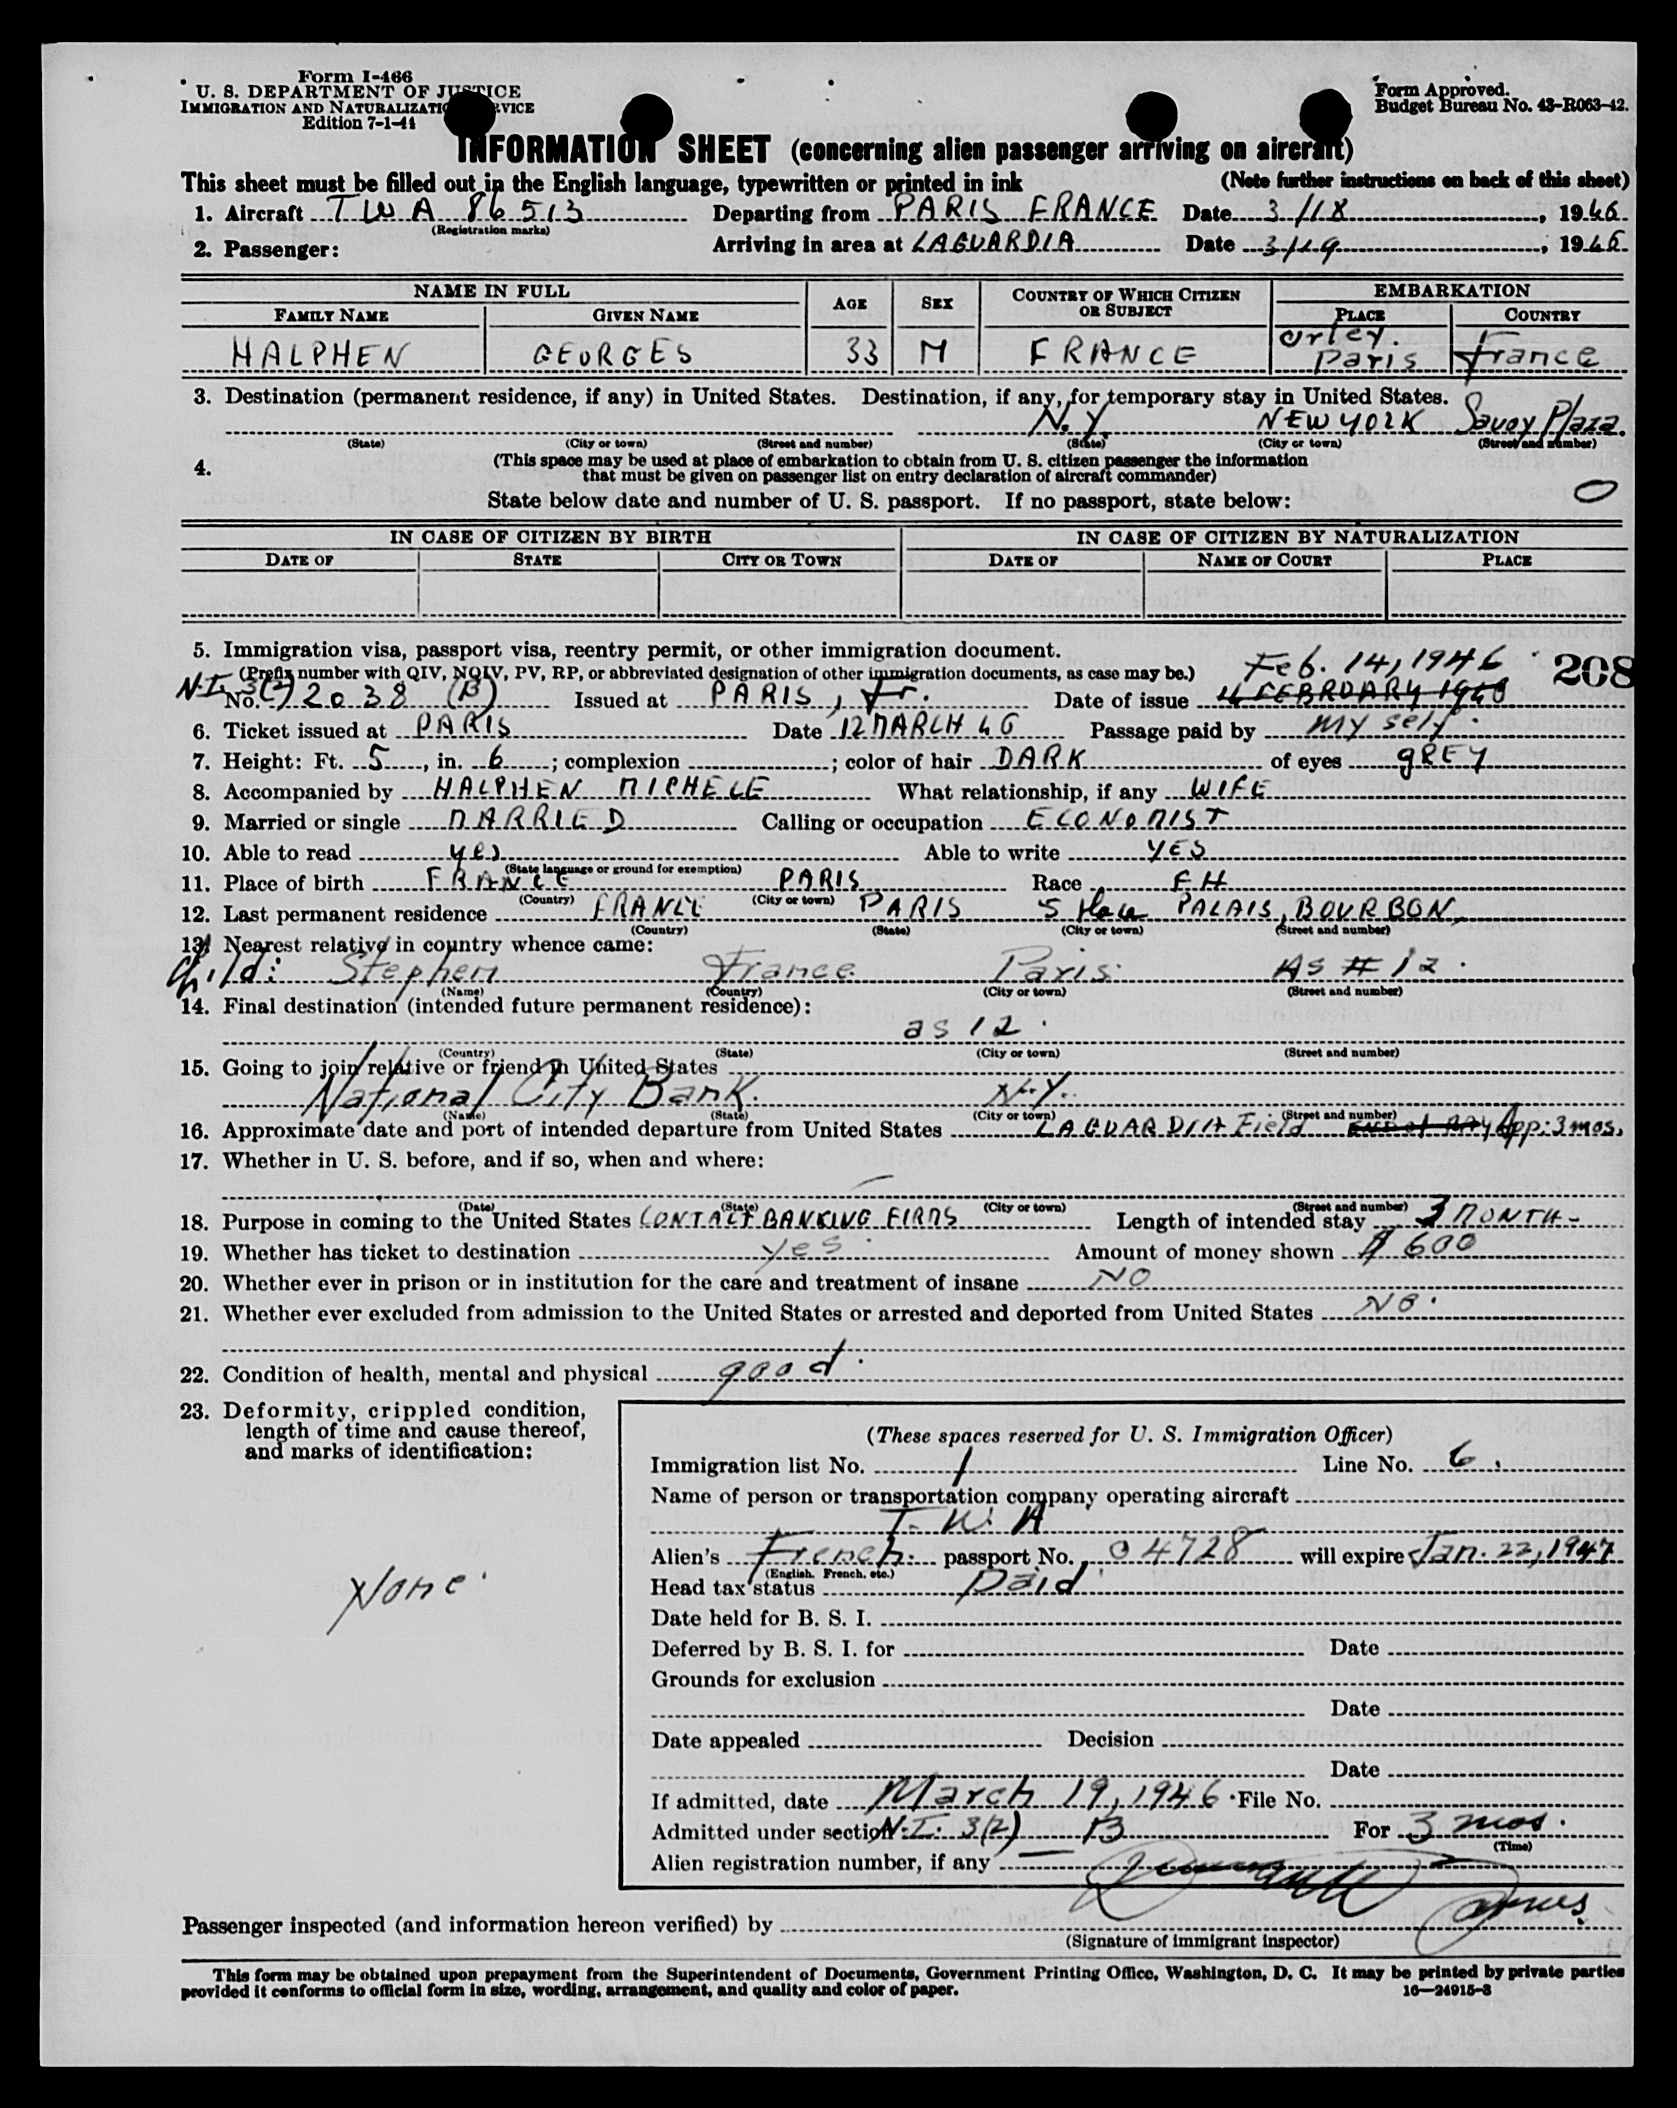 Form I-466
U. S. DEPARTMENT OF JUSTICE
IMMIGRATION AND NATURALIZATION SERVICE
Edition 7-1-44
Form Approved.
Budget Bureau No. 43-R063-42.
INFORMATION SHEET (concerning alien passenger arriving on aircraft)
This sheet must be filled out in the English language, typewritten or printed in ink (Note further instructions on back of this sheet)
1. Aircraft TWA 86513 Departing from PARIS FRANCE Date 3/18, 1946
(Registration marks)
2. Passenger: Arriving in area at LAGUARDIA Date 3/19, 1946
NAME IN FULL AGE SEX COUNTRY OF WHICH CITIZEN OR SUBJECT EMBARKATION
FAMILY NAME GIVEN NAME PLACE COUNTRY
HALPHEN GEORGES 33 M FRANCE Orley. Paris France
3. Destination (permanent residence, if any) in United States. Destination, if any, for temporary stay in United States.
N.Y. NEW YORK Savoy Plaza.
(State) (City or town) (Street and number) (State) (City or town) (Street and number)
4. (This space may be used at place of embarkation to obtain from U. S. citizen passenger the information
that must be given on passenger list on entry declaration of aircraft commander)
State below date and number of U. S. passport. If no passport, state below: O
IN CASE OF CITIZEN BY BIRTH IN CASE OF CITIZEN BY NATURALIZATION
DATE OF STATE CITY OR TOWN DATE OF NAME OF COURT PLACE
5. Immigration visa, passport visa, reentry permit, or other immigration document.
(Prefix number with QIV, NQIV, PV, RP, or abbreviated designation of other immigration documents, as case may be.) Feb. 14, 1946 208
N.I. 3(2) No. 2038 (B) Issued at PARIS, Fr. Date of issue 14 FEBRUARY 1946
6. Ticket issued at PARIS Date 12 MARCH 46 Passage paid by my self.
7. Height: Ft. 5, in. 6; complexion ; color of hair DARK of eyes gREY
8. Accompanied by HALPHEN MICHELE What relationship, if any WIFE
9. Married or single MARRIED Calling or occupation ECONOMIST
10. Able to read yes Able to write YES
(State language or ground for exemption)
11. Place of birth FRANCE PARIS Race FH
(Country) (City or town)
12. Last permanent residence FRANCE PARIS 5 Place PALAIS BOURBON
(Country) (State) (City or town) (Street and number)
13. Nearest relative in country whence came:
Child: Stephen France Paris. AS # 12.
(Name) (Country) (City or town) (Street and number)
14. Final destination (intended future permanent residence):
as 12.
(Country) (State) (City or town) (Street and number)
15. Going to join relative or friend in United States
National City Bank. N.Y.
(Name) (State) (City or town) (Street and number)
16. Approximate date and port of intended departure from United States LAGUARDIA Field END of MAY App: 3 mos.
17. Whether in U. S. before, and if so, when and where:
—
(Date) (State) (City or town) (Street and number)
18. Purpose in coming to the United States CONTACT BANKING FIRMS Length of intended stay 3 MONTH-
19. Whether has ticket to destination yes. Amount of money shown $ 600
20. Whether ever in prison or in institution for the care and treatment of insane NO
21. Whether ever excluded from admission to the United States or arrested and deported from United States NO.
22. Condition of health, mental and physical good.
23. Deformity, crippled condition,
length of time and cause thereof,
and marks of identification:
None.
(These spaces reserved for U. S. Immigration Officer)
Immigration list No. 1 Line No. 6.
Name of person or transportation company operating aircraft
T. W. A
Alien's French. passport No. 04728 will expire Jan. 22, 1947
(English, French, etc.)
Head tax status Paid
Date held for B. S. I.
Deferred by B. S. I. for Date
Grounds for exclusion
Date
Date appealed Decision
Date
If admitted, date March 19, 1946. File No.
Admitted under section N.I. 3(2) B For 3 mos.
(Time)
Alien registration number, if any —
Passenger inspected (and information hereon verified) by
(Signature of immigrant inspector)
This form may be obtained upon prepayment from the Superintendent of Documents, Government Printing Office, Washington, D. C. It may be printed by private parties
provided it conforms to official form in size, wording, arrangement, and quality and color of paper. 16—24915-3